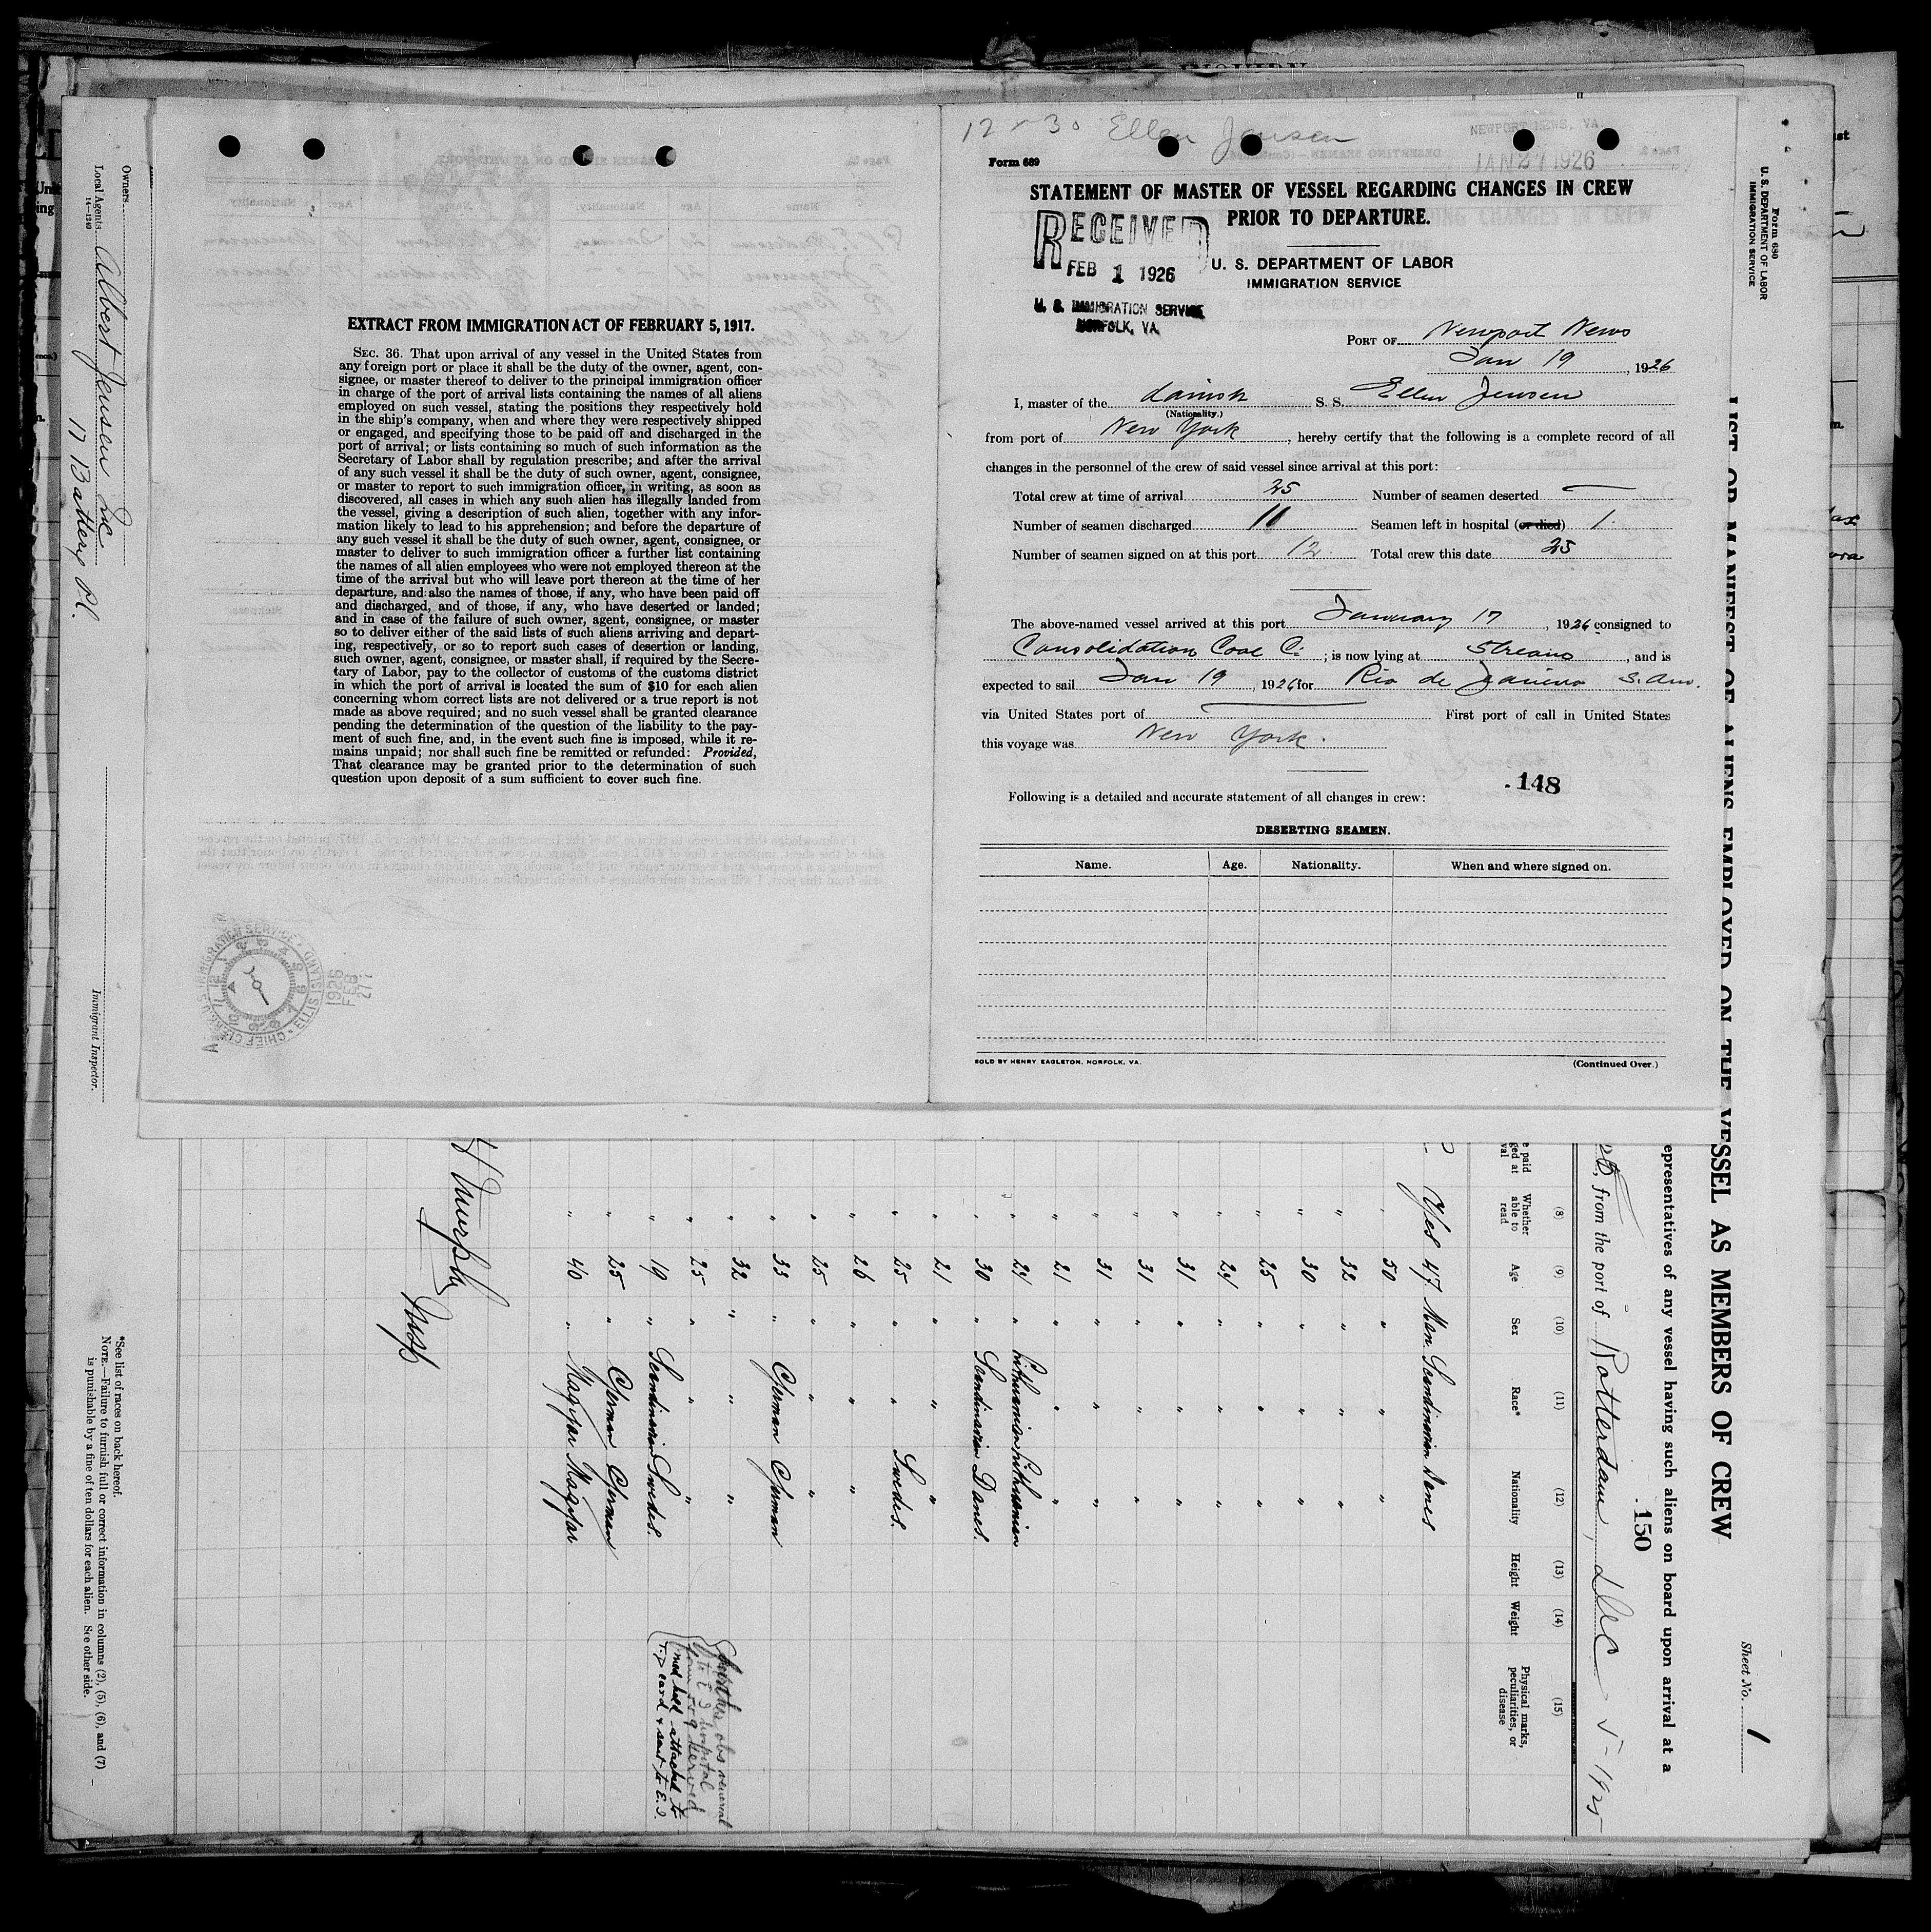 12-30 Ellen Jensen
NEWPORT NEWS, VA.
JAN 27 1926
Form 689
STATEMENT OF MASTER OF VESSEL REGARDING CHANGES IN CREW
PRIOR TO DEPARTURE.
RECEIVED
FEB 1 1926
U. S. IMMIGRATION SERVICE
NORFOLK, VA.
U. S. DEPARTMENT OF LABOR
IMMIGRATION SERVICE
PORT OF Newport News
Jan 19, 1926
I, master of the danish S. S. Ellen Jensen
(Nationality.)
from port of New York, hereby certify that the following is a complete record of all
changes in the personnel of the crew of said vessel since arrival at this port:
Total crew at time of arrival 25 Number of seamen deserted —
Number of seamen discharged 11 Seamen left in hospital (or died) 1.
Number of seamen signed on at this port 12. Total crew this date 25
The above-named vessel arrived at this port January 17, 1926 consigned to
Consolidation Coal C:; is now lying at Stream, and is
expected to sail Jan 19, 1926 for Rio de Janeiro S. Am.
via United States port of — First port of call in United States
this voyage was New York.
.148
Following is a detailed and accurate statement of all changes in crew:
DESERTING SEAMEN.
Name. Age. Nationality. When and where signed on.
SOLD BY HENRY EAGLETON, NORFOLK, VA.
(Continued Over.)
EXTRACT FROM IMMIGRATION ACT OF FEBRUARY 5, 1917.
SEC. 36. That upon arrival of any vessel in the United States from
any foreign port or place it shall be the duty of the owner, agent, con-
signee, or master thereof to deliver to the principal immigration officer
in charge of the port of arrival lists containing the names of all aliens
employed on such vessel, stating the positions they respectively hold
in the ship's company, when and where they were respectively shipped
or engaged, and specifying those to be paid off and discharged in the
port of arrival; or lists containing so much of such information as the
Secretary of Labor shall by regulation prescribe; and after the arrival
of any such vessel it shall be the duty of such owner, agent, consignee,
or master to report to such immigration officer, in writing, as soon as
discovered, all cases in which any such alien has illegally landed from
the vessel, giving a description of such alien, together with any infor-
mation likely to lead to his apprehension; and before the departure of
any such vessel it shall be the duty of such owner, agent, consignee, or
master to deliver to such immigration officer a further list containing
the names of all alien employees who were not employed thereon at the
time of the arrival but who will leave port thereon at the time of her
departure, and also the names of those, if any, who have been paid off
and discharged, and of those, if any, who have deserted or landed;
and in case of the failure of such owner, agent, consignee, or master
so to deliver either of the said lists of such aliens arriving and depart-
ing, respectively, or so to report such cases of desertion or landing,
such owner, agent, consignee, or master shall, if required by the Secre-
tary of Labor, pay to the collector of customs of the customs district
in which the port of arrival is located the sum of $10 for each alien
concerning whom correct lists are not delivered or a true report is not
made as above required; and no such vessel shall be granted clearance
pending the determination of the question of the liability to the pay-
ment of such fine, and, in the event such fine is imposed, while it re-
mains unpaid; nor shall such fine be remitted or refunded: Provided,
That clearance may be granted prior to the determination of such
question upon deposit of a sum sufficient to cover such fine.
U.S. IMMIGRATION SERVICE
CHIEF CLERK
ELLIS ISLAND
1926
FEB
Form 680
U. S. DEPARTMENT OF LABOR
IMMIGRATION SERVICE
Sheet No. 1
LIST OR MANIFEST OF ALIENS EMPLOYED ON THE VESSEL AS MEMBERS OF CREW
epresentatives of any vessel having such aliens on board upon arrival at a
.150
from the port of Rotterdam, Dec
(8) (9) (10) (11) (12) (13) (14) (15)
Whether able to read Age Sex Race* Nationality Height Weight Physical marks, peculiarities, or disease
Yes 47 Men. Scandinavian Danes
" 50 " " "
" 32 " " "
" 30 " " "
" 25 " " "
" 24 " " "
" 31 " " "
" 31 " " "
" 31 " " "
" 21 " " "
" 24 " Lithuanian Lithuanian
" 30 " Scandinavian Danes.
" 21 " " "
" 25 " " Swedes.
" 26 " " "
" 25 " " "
" 33 " German German
" 32 " " "
" 25 " " "
" 19 " Scandinavian Swedes.
" 25 " German German
" 40 " Magyar Magyar
hospital
med held attached to
card & sent to E. I.
Murphy
Insp
*See list of races on back hereof.
NOTE.—Failure to furnish full or correct information in columns (2), (5), (6), and (7)
is punishable by a fine of ten dollars for each alien. See other side.
Owners
Local Agents Albert Jensen Inc
14—1240
17 Battery Pl.
Immigrant Inspector.